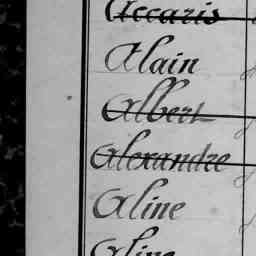 Accaris
Alain
Albert
Alexandre
Aline
Aline